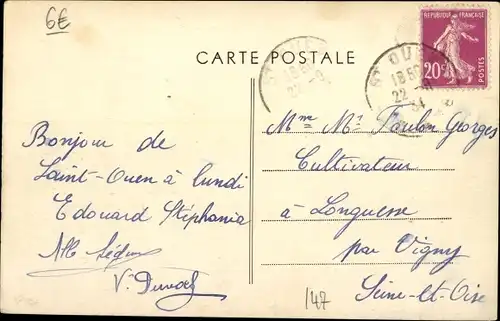 6€
CARTE POSTALE
REPUBLIQUE FRANÇAISE
20c
POSTES
ST OUEN
18 30
22 -
34
18
22 -
Bonjour de
Saint-Ouen à lundi
Edouard Stéphania
Mme Mr Foulon Georges
Cultivateur
à Longuesse
par Vigny
Seine-et-Oise
147